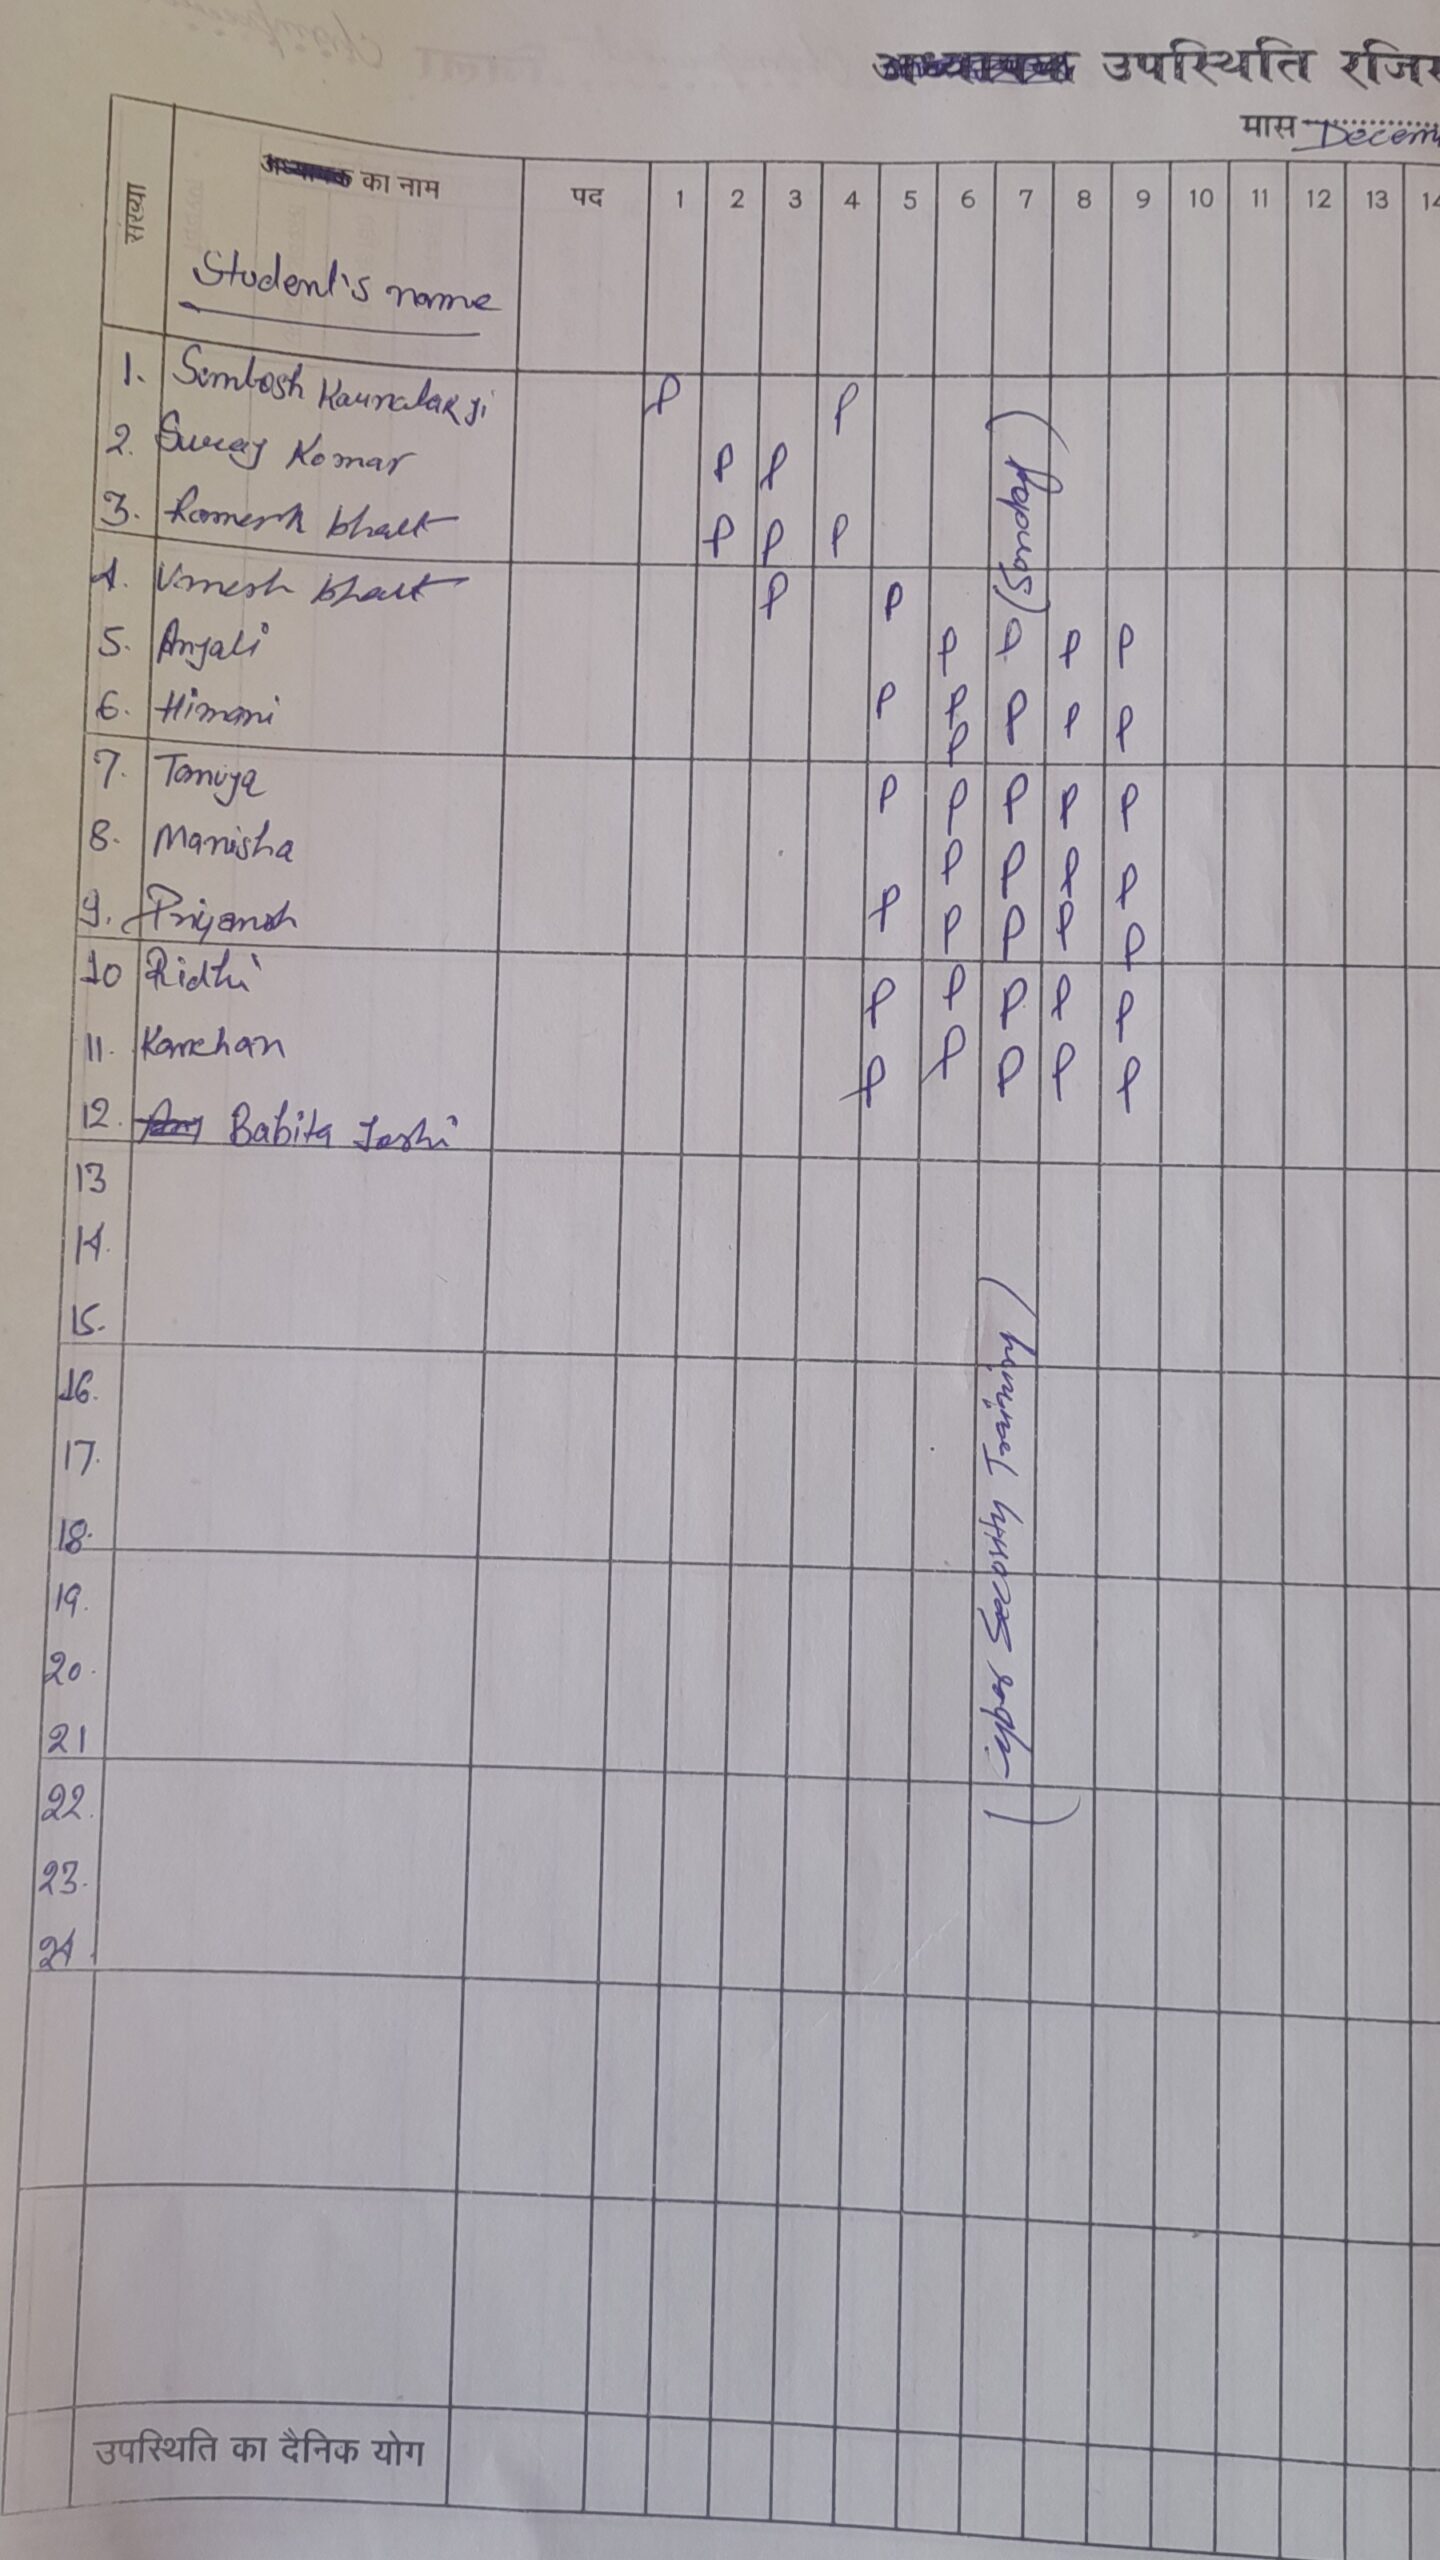 उपस्थिति रजिस
मास Decem
संख्या का नाम पद 1 2 3 4 5 6 7 8 9 10 11 12 13 14
Student's name
1. P P
2. Suraj Komar P P
3. Ramesh bhatt P P P
4. Umesh bhatt P P
(Sunday)
5. Anjali P P P P
6. Himani P P P P P
P
7. Tanuja P P P P P
8. Manisha P P P P
9. Priyansh P P P P P
10 Ridhi P P P P P
11. Kanchan P P P P P
12. Babita Joshi
13
14.
15.
16.
17.
18.
19.
20.
21
22.
23.
24.
उपस्थिति का दैनिक योग